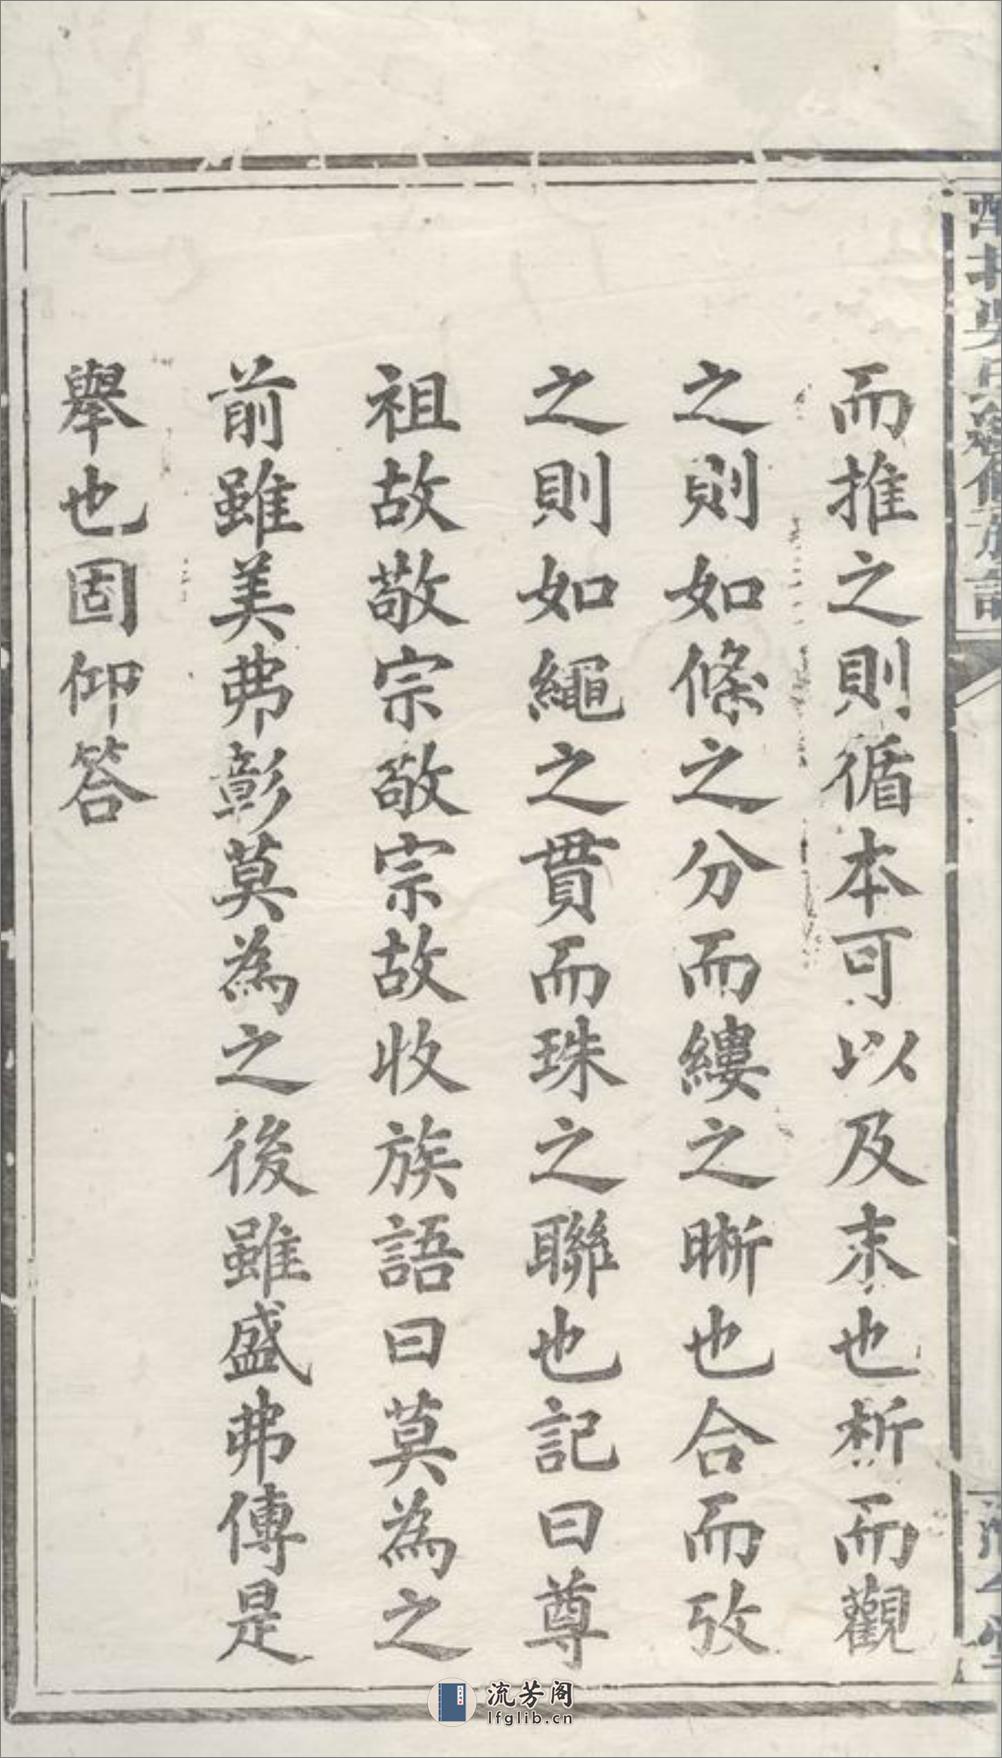 而推之則循本可以及末也析而觀
之則如條之分而縷之晰也合而攷
之則如繩之貫而珠之聯也記曰尊
祖故敬宗敬宗故收族語曰莫為之
前雖美弗彰莫為之後雖盛弗傳是
舉也固仰答
流芳阁
lfglib.cn